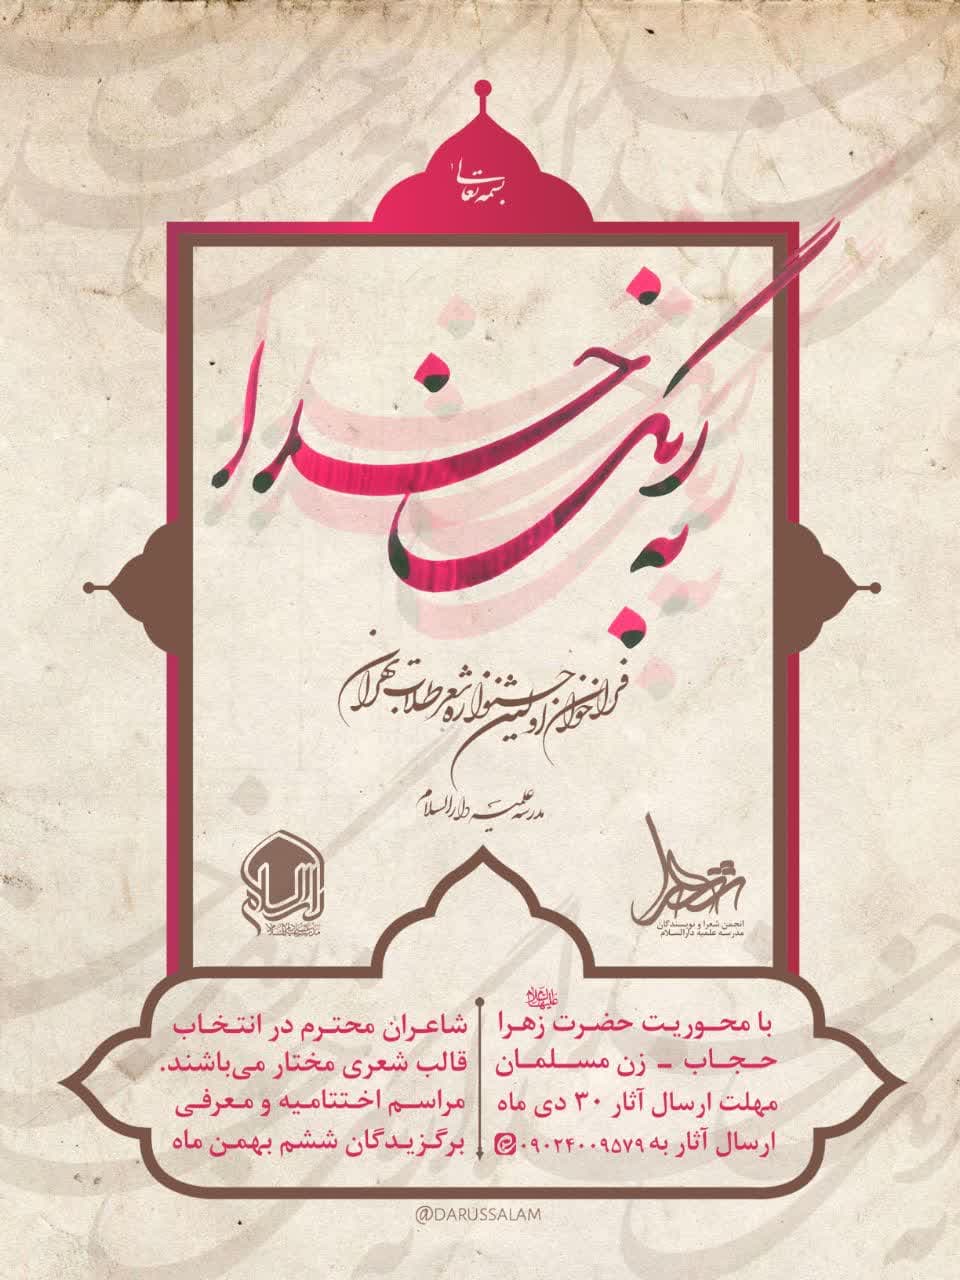 بسمه تعالی
به رنگ خدا
فراخوان اولین جشنواره شعر طلاب تهران
مدرسه علمیه دارالسلام
انجمن شعرا و نویسندگان
مدرسه علمیه دارالسلام
با محوریت حضرت زهرا علیهاالسلام
حجاب - زن مسلمان
مهلت ارسال آثار ۳۰ دی ماه
ارسال آثار به ۰۹۰۲۴۰۰۹۵۷۹
شاعران محترم در انتخاب
قالب شعری مختار می‌باشند.
مراسم اختتامیه و معرفی
برگزیدگان ششم بهمن ماه
@DARUSSALAM